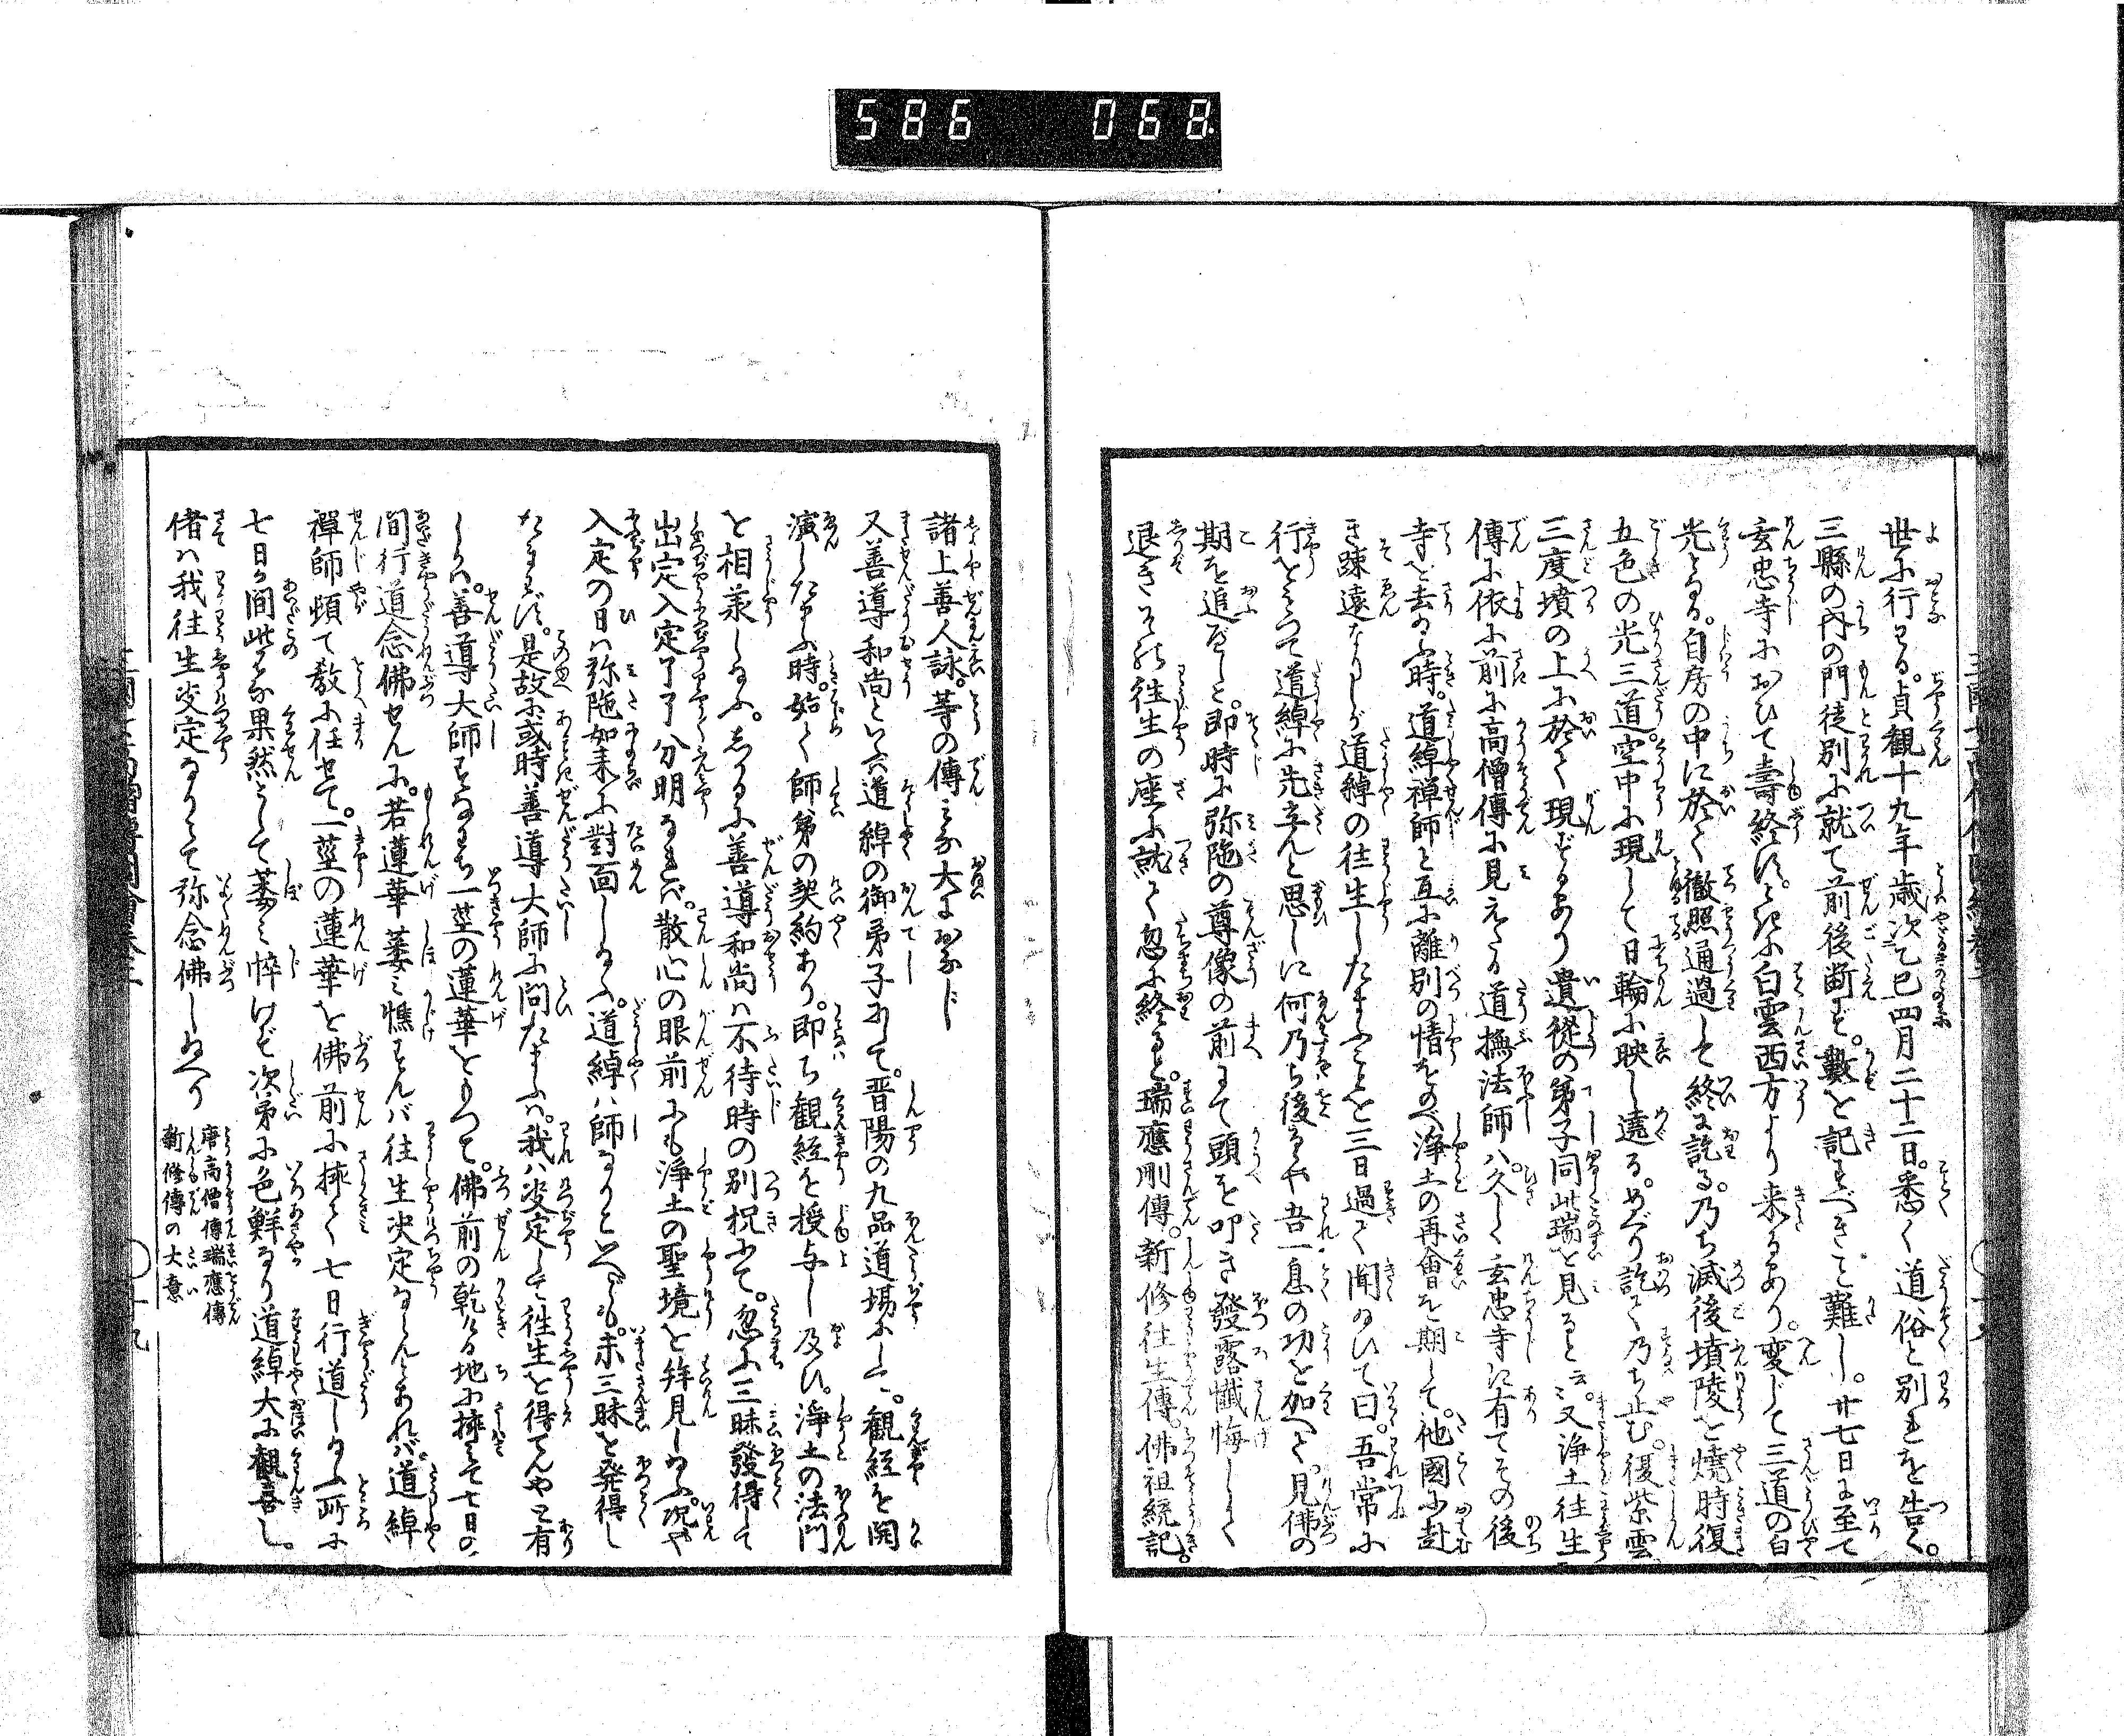 586 068
世に行はる。貞観十九年歳次乙巳四月二十二日。悉く道俗と別れを告く。
三縣の内の門徒別に就て前後断ず。數を記すべきこと難し。廿七日に至て
玄忠寺において壽終す。ときに白雲西方より来るあり。変じて三道の白
光となる。自房の中に於て徹照通過して終に訖る。乃ち滅後墳陵を焼時復
五色の光三道。空中に現して日輪に映し遶る。めぐり訖て乃ち止む。復紫雲
三度墳の上に於て現ずるあり遺従の弟子同此瑞を見ると云々。又浄土往生
傳に依に前に高僧傳に見えたる道撫法師ハ。久しく玄忠寺に有てその後
寺を去る時。道綽禅師と互に離別の情をのべ浄土の再會を期して。他國に赴
き踈遠なりしが道綽の往生したまふことを三日過て聞給ひて曰。吾常に
行をもつて道綽に先立んと思しに何乃ち後るや吾一息の功を加へて。見佛の
期を追べしと。即時に弥陀の尊像の前にて頭を叩き發露懺悔しく
退きそれ往生の座に就て忽に終ると。瑞應刪傳。新修往生傳。佛祖統記。
諸上善人詠。等の傳ミな大におなじ
又善導和尚といふハ道綽の御弟子にて。晋陽の九品道場にして。観経を開
演したまふ時。始て師弟の契約あり。即ち観経を授与し及ひ。浄土の法門
を相羕し給ふ。しかるに善導和尚ハ不待時の別㧞にて。忽に三昧發得して
出定入定了了分明なれバ。散心の眼前にも浄土の聖境を拜見し給ふ。况や
入定の日ハ弥陀如来に對面し給ふ。道綽ハ師なりといへども。未三昧を発得し
たまはず。是故に或時善導大師に問たまふハ。我ハ決定して往生を得てんやと有
しかバ。善導大師すなわち一莖の蓮華をもつて。佛前の乾ける地に挿て七日の
間行道念佛せんに。若蓮華萎ミ憔ずんバ往生决定ならんとあれバ。道綽
禅師頓て教に任せて。一莖の蓮華を佛前に挿て七日行道し給ふ所に
七日の間此花果然として萎ミ悴けず次第に色鮮なり道綽大に観喜し。
偖ハ我往生决定なりとて弥念佛し給へり
唐高僧傳瑞應傳
新修傳の大意